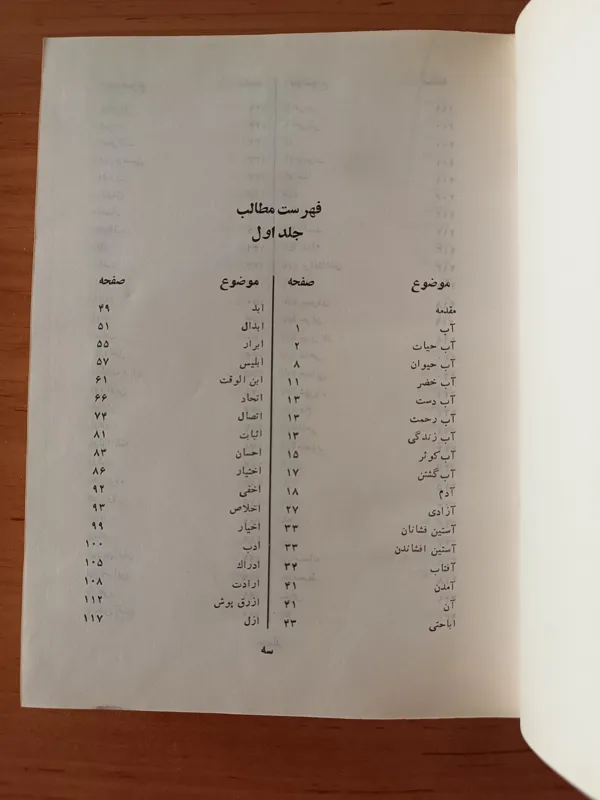 فهرست مطالب
جلد اول
موضوع صفحه
مقدمه
آب ۱
آب حیات ۲
آب حیوان ۸
آب خضر ۱۱
آب دست ۱۳
آب رحمت ۱۳
آب زندگی ۱۳
آب کوثر ۱۵
آب گشتن ۱۷
آدم ۱۸
آزادی ۲۷
آستین فشانان ۳۳
آستین افشاندن ۳۳
آفتاب ۳۴
آمدن ۴۱
آن ۴۱
اباحتی ۴۳
موضوع صفحه
ابد ۴۹
ابدال ۵۱
ابرار ۵۵
ابلیس ۵۷
ابن الوقت ۶۱
اتحاد ۶۶
اتصال ۷۴
اثبات ۸۱
احسان ۸۳
اختیار ۸۶
اخفی ۹۲
اخلاص ۹۳
اخیار ۹۹
ادب ۱۰۰
ادراك ۱۰۵
ارادت ۱۰۸
ازرق پوش ۱۱۲
ازل ۱۱۷
سه